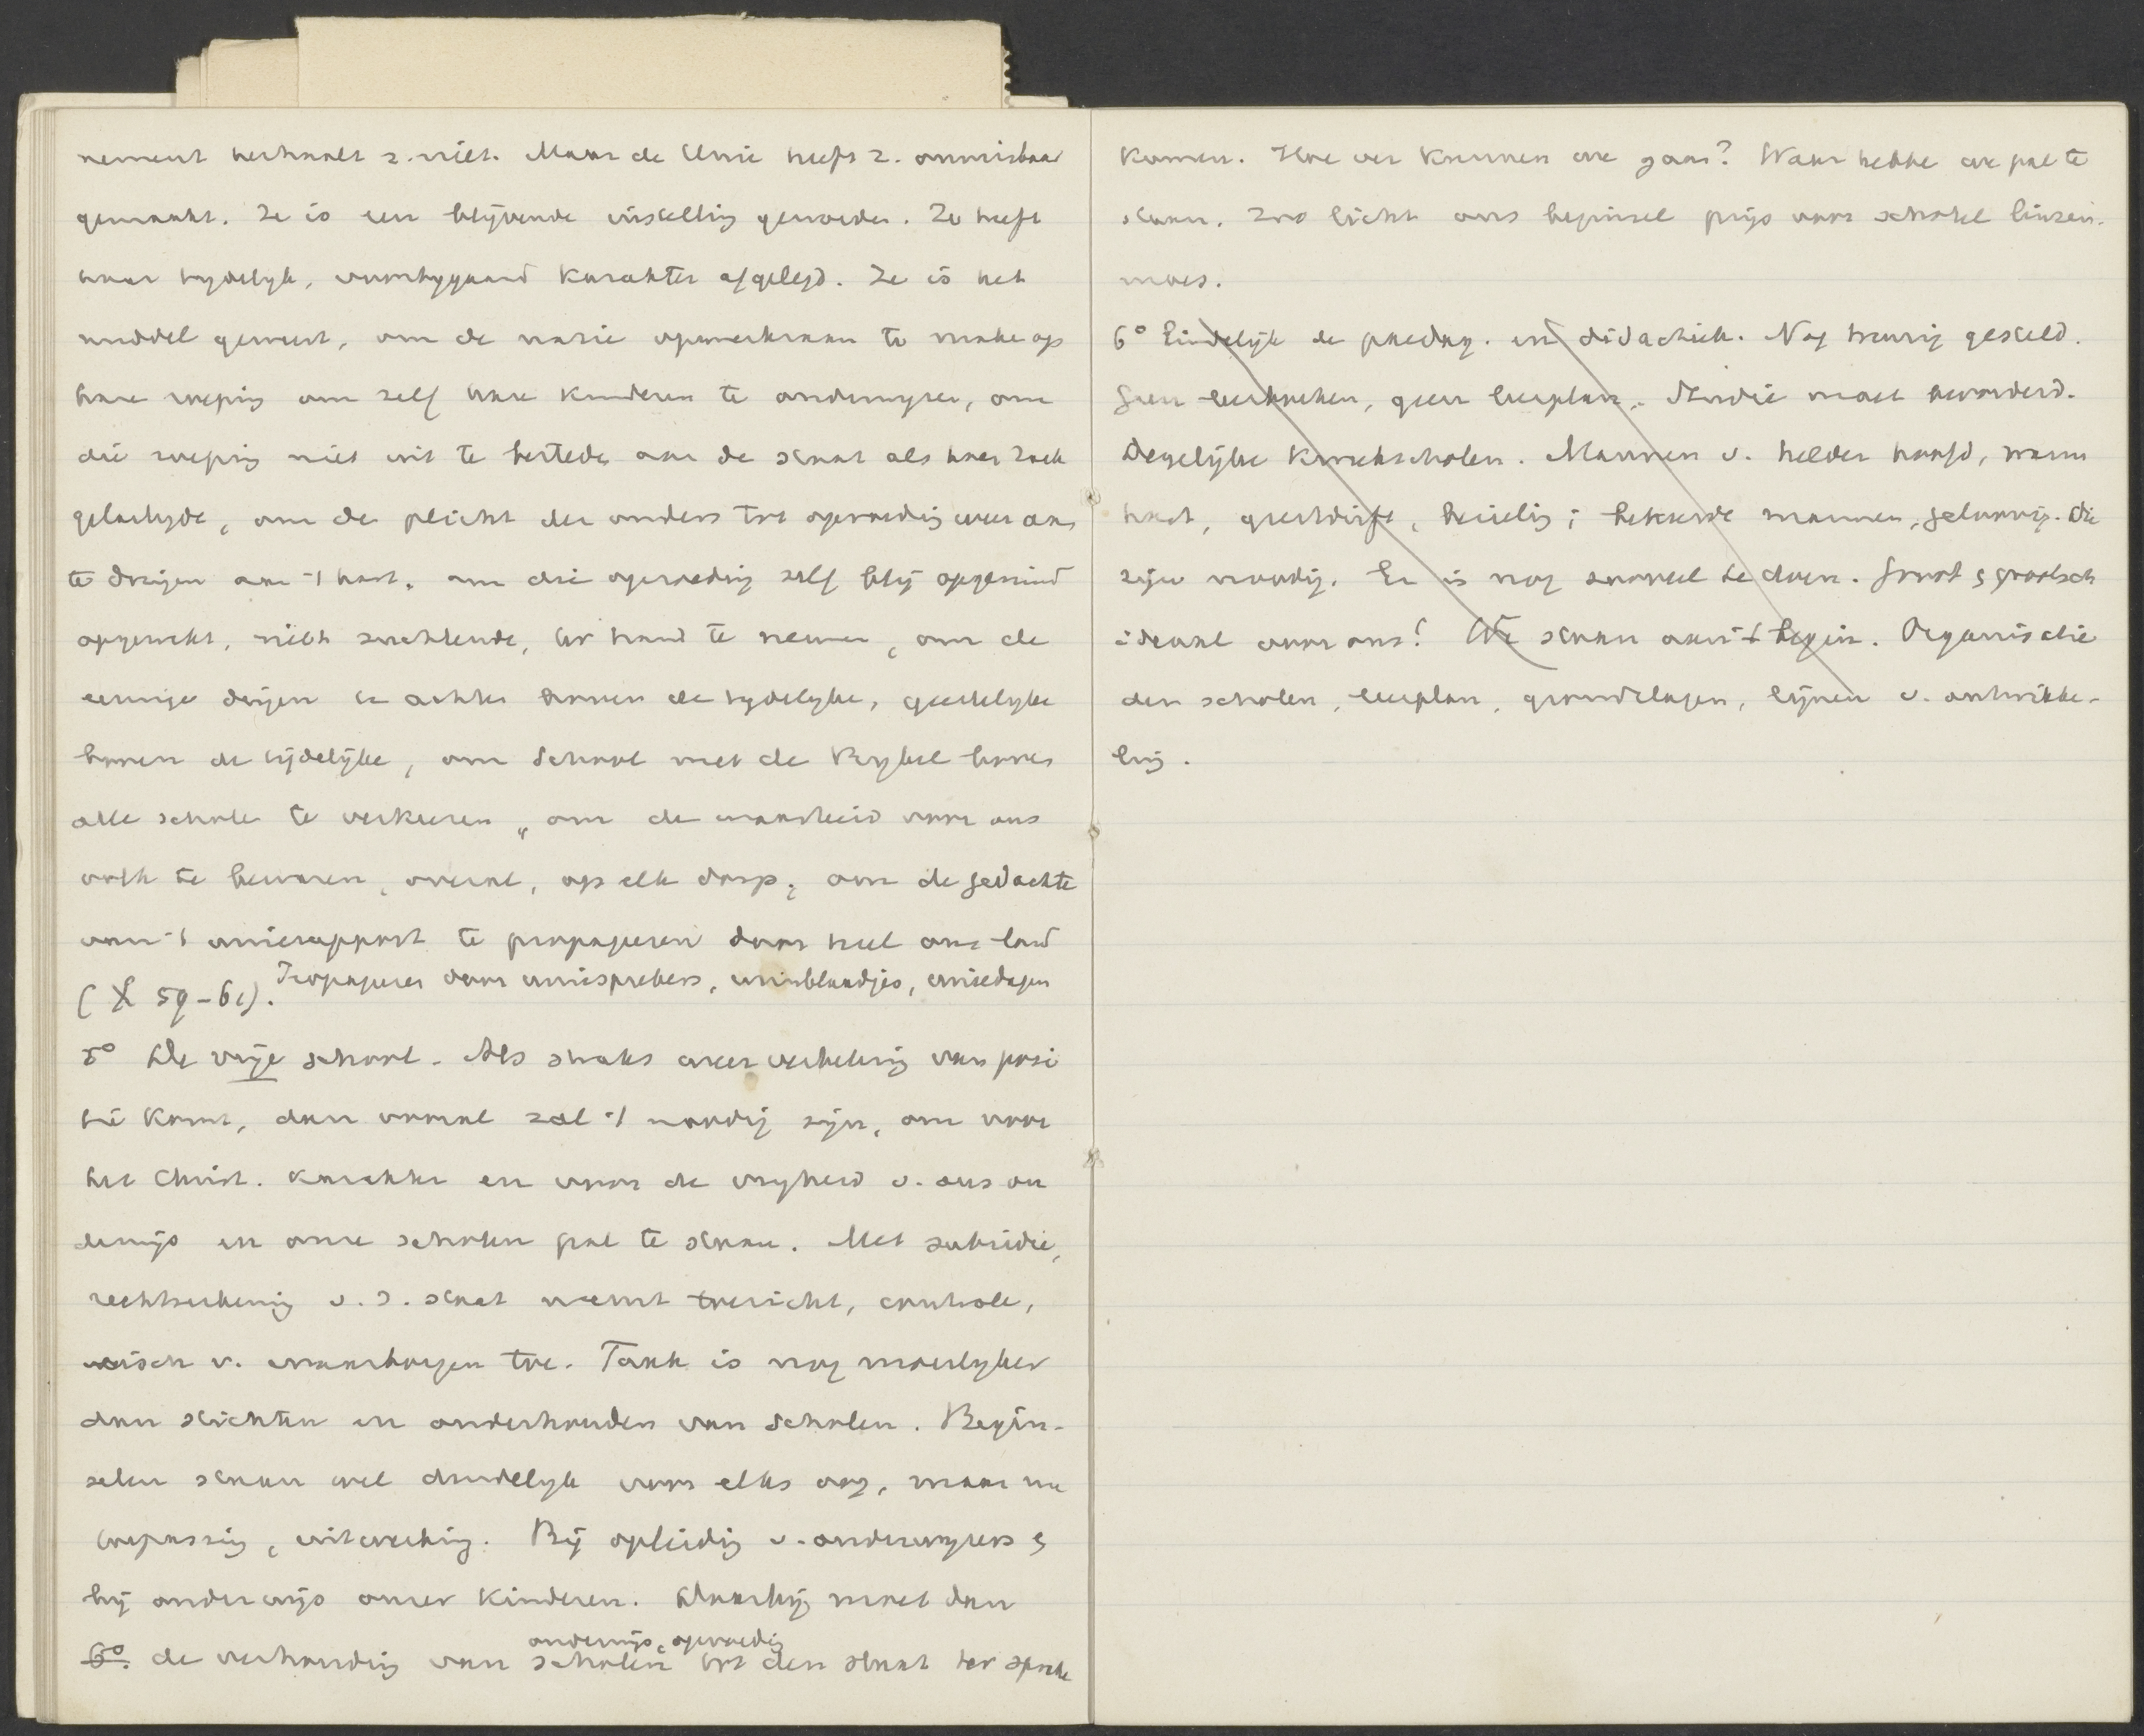 nement herhaalt z. niet. Maar de Unie heeft z. onmisbaar
gemaakt. Ze is een blijvende instelling geworden. Ze heeft
haar tijdelijk, voorbijgaand karakter afgelegd. Ze is het
middel geweest, om de natie opmerkzaam te make op
hare roeping om zelf hare kinderen te onderwijzen, om
die roeping niet uit te bestede aan de staat als haar zaak
gelastigde, om de plicht der ouders tot opvoeding weer ons
te dringen aan 't hart, om die opvoeding zelf blij opgeruimd
opgewekt, niet zuchtende, ter hand te nemen, om de
eeuwige dingen te achten boven de tydelyke, geestelyke
boven de tijdelijke, om School met de Bybel boven
alle schole te verkiezen, om de waarheid voor ons
volk te bewaren, overal, op elk dorp, om de gedachte
van 't unierapport te propageren door heel ons land
( 59-61). Propageren door uniesprekers, unieblaadjes, uniedagen
5° De vrije school. Als straks weer verbetering van posi
tie komt, dan vooral zal 't noodig zijn, om voor
het Christ. karakter en voor de vryheid v. ons on
derwijs en onze scholen pal te staan. Met subsidie,
rechtserkenning v. d. staat neemt toezicht, controle,
eisch v. waarborgen toe. Taak is nog moeilyker
dan stichten en onderhouden van scholen. Begin-
selen staan wel duidelyk voor elks oog, maar nu
toepassing, uitwerking. Bij opleiding v. onderwyzers &
bij onderwijs onzer kinderen. Daarbij moet dan
onderwijs, opvoeding
6°. de verhouding van scholen tot den staat ter sprake
komen. Hoe ver kunnen we gaan? Waar hebbe we pal te
staan. Zoo licht ons beginsel prijs voor schotel linzen-
moes.
6° Eindelijk de paedag. en didactiek. Nog treurig gesteld.
Geen leerboeken, geen leerplan. Studie moet bevorderd.
Degelijke kweekscholen. Mannen v. helder hoofd, warm
hart, geestdrift, bezieling; bekeerde mannen, geloovig. Die
zijn noodig. Er is nog zooveel te doen. Groot & grootsch
ideaal voor ons! We staan aan 't begin. Organisatie
der scholen, leerplan, grondslagen, lijnen v. ontwikke-
ling.